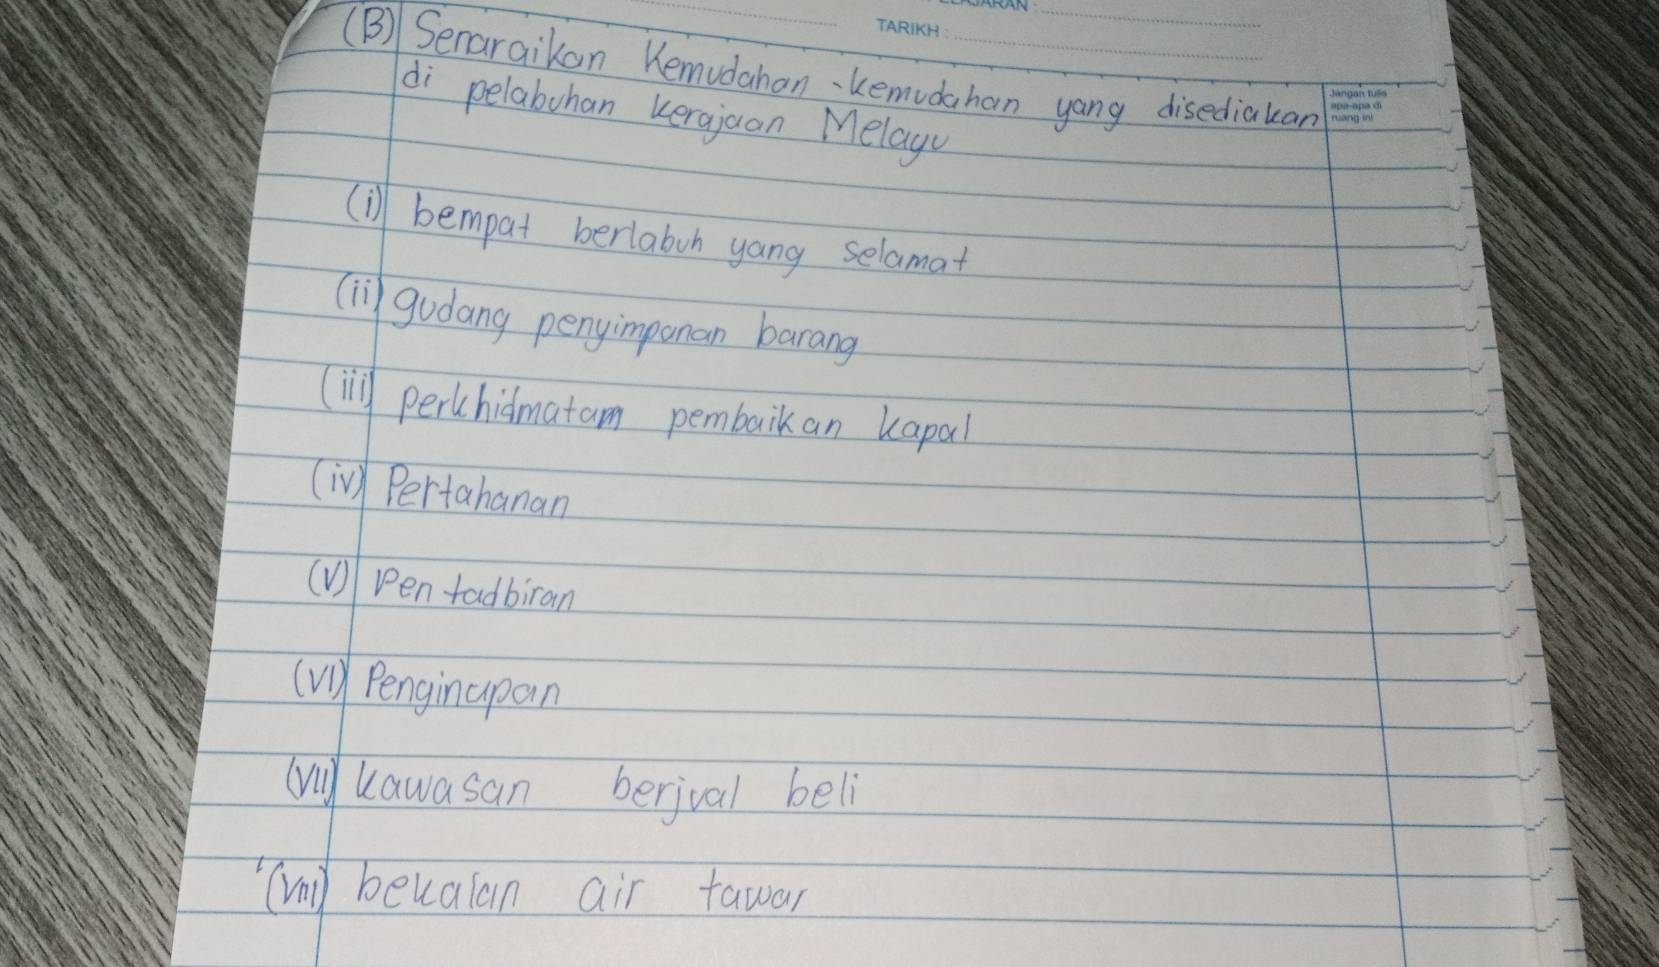 TARIKH :
Jangan tulis
apa-apa di
ruang ini
(B) Senaraikan Kemudahan-kemudahan yang disediakan
di pelabuhan kerajaan Melayu
(i) bempat berlabuh yang selamat
(ii) gudang penyimpanan barang
(iii) perkhidmatam pembaikan kapal
(iv) Pertahanan
(v) Pentadbiran
(vi) Penginapan
(vii) kawasan berjual beli
(viii) bekalan air tawar